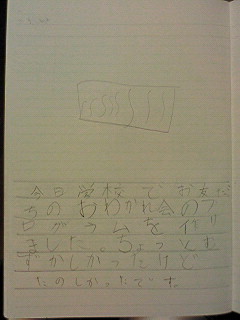 今日学校でお友だ
ちのおわかれ会のプ
ログラムを作り
ました。ちょっとむ
ずかしかったけど
たのしかったです。